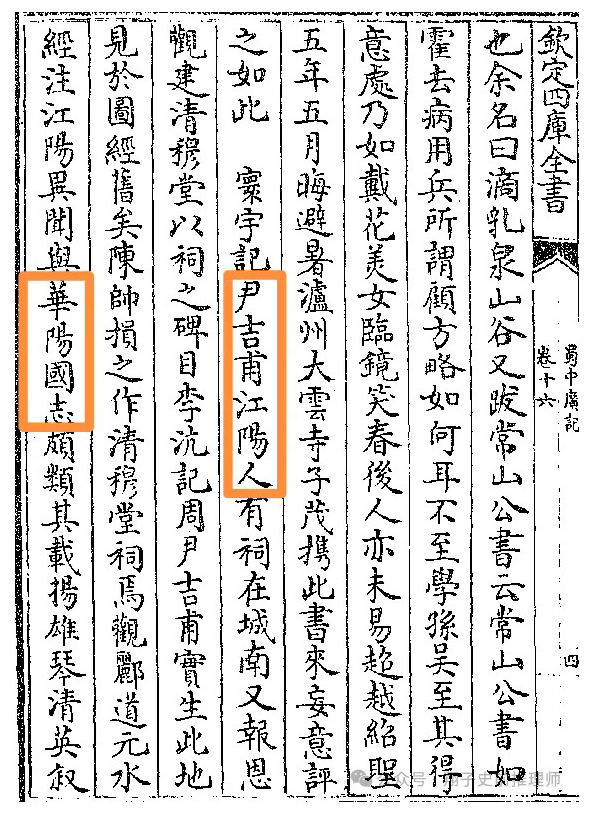 欽定四庫全書
蜀中廣記
卷十六
四
也余名曰滴乳泉山谷又跋常山公書云常山公書如
霍去病用兵所謂顧方略如何耳不至學孫吳至其得
意處乃如戴花美女臨鏡笑春後人亦未易超越紹聖
五年五月晦避暑瀘州大雲寺子茂携此書來妄意評
之如此　寰宇記尹吉甫江陽人有祠在城南又報恩
觀建清穆堂以祠之碑目李沆記周尹吉甫實生此地
見於圖經舊矣陳帥損之作清穆堂祠焉觀酈道元水
經注江陽異聞與華陽國志頗類其載揚雄琴清英叙
公众号 推理师